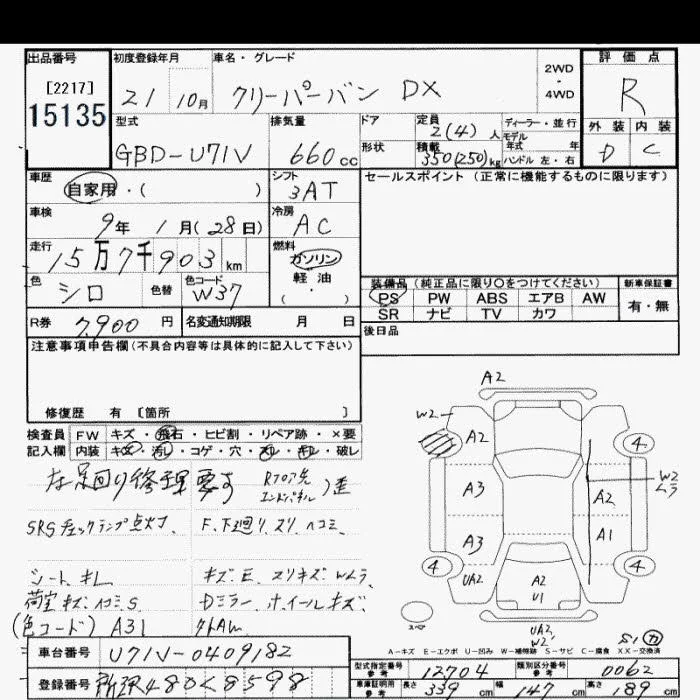 出品番号
[2217]
15135
初度登録年月
21 10月
車名・グレード
クリーパーバン DX
2WD
・
4WD
評価点
R
外装 内装
D C
型式
GBD-U71V
排気量
660cc
ドア
形状
定員
2(4)人
積載
350(250)kg
ディーラー・並行
モデル
年式 年
ハンドル 左・右
車歴
自家用・( )
シフト
3AT
セールスポイント(正常に機能するものに限ります)
車検
9年 1月(28日)
冷房
AC
走行
15万7千903km
燃料
ガソリン
軽油
( )
色
シロ
色替
色コード
W37
装備品(純正品に限り○をつけてください)
PS PW ABS エアB AW
SR ナビ TV カワ
新車保証書
有・無
R券 7,900円
名変通知期限 月 日
後日品
注意事項申告欄(不具合内容等は具体的に記入して下さい)
修復歴 有 [箇所 ]
検査員 FW キズ・飛石・ヒビ割・リペア跡・×要
記入欄 内装 キズ・汚し・コゲ・穴・スレ・キレ・破レ
足回り修理要す
Rフロア先
エンドパネル
SRSチェックランプ点灯、
F、下廻り、スリ、ヘコミ、
シート、キレ
キズ、E、スリキズ、Wムラ、
荷室キズ、ヘコミ、S、
Dミラー、ホイールキズ、
(色コード) A31
A2
W2
A2
4
A3
W2
ムラ
A2
A3
A1
4
4
UA2
A2
U1
スペア
UA2
W2
S1
A-キズ E-エクボ U-凹み W-補修跡 S-サビ C-腐食 XX-交換済
車台番号 U71V-0409182
登録番号
480
8598
型式指定番号
参考
12704
類別区分番号
参考
0062
車庫証明用
参考
長さ 339cm 幅 147cm 高さ 189cm